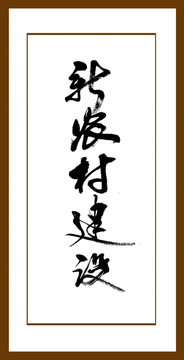 新农村建设